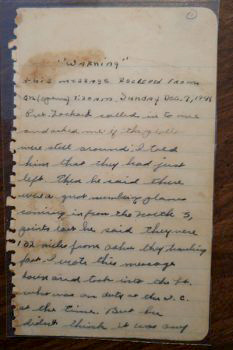 ①
"Warning"
this message Received From
on (opana) 7:20 a.m. Sunday Dec. 7, 1941
Pvt. Lockard called in to me
and asked me if they
were still around; I told
him that they had just
left. Then he said there
were a great number planes
coming in from the North 3
points east he said they were
miles from and they
fast. I wrote this message
down and took into the Lt.
who was on duty at the I.C.
at the time. But he
didn't think it was any